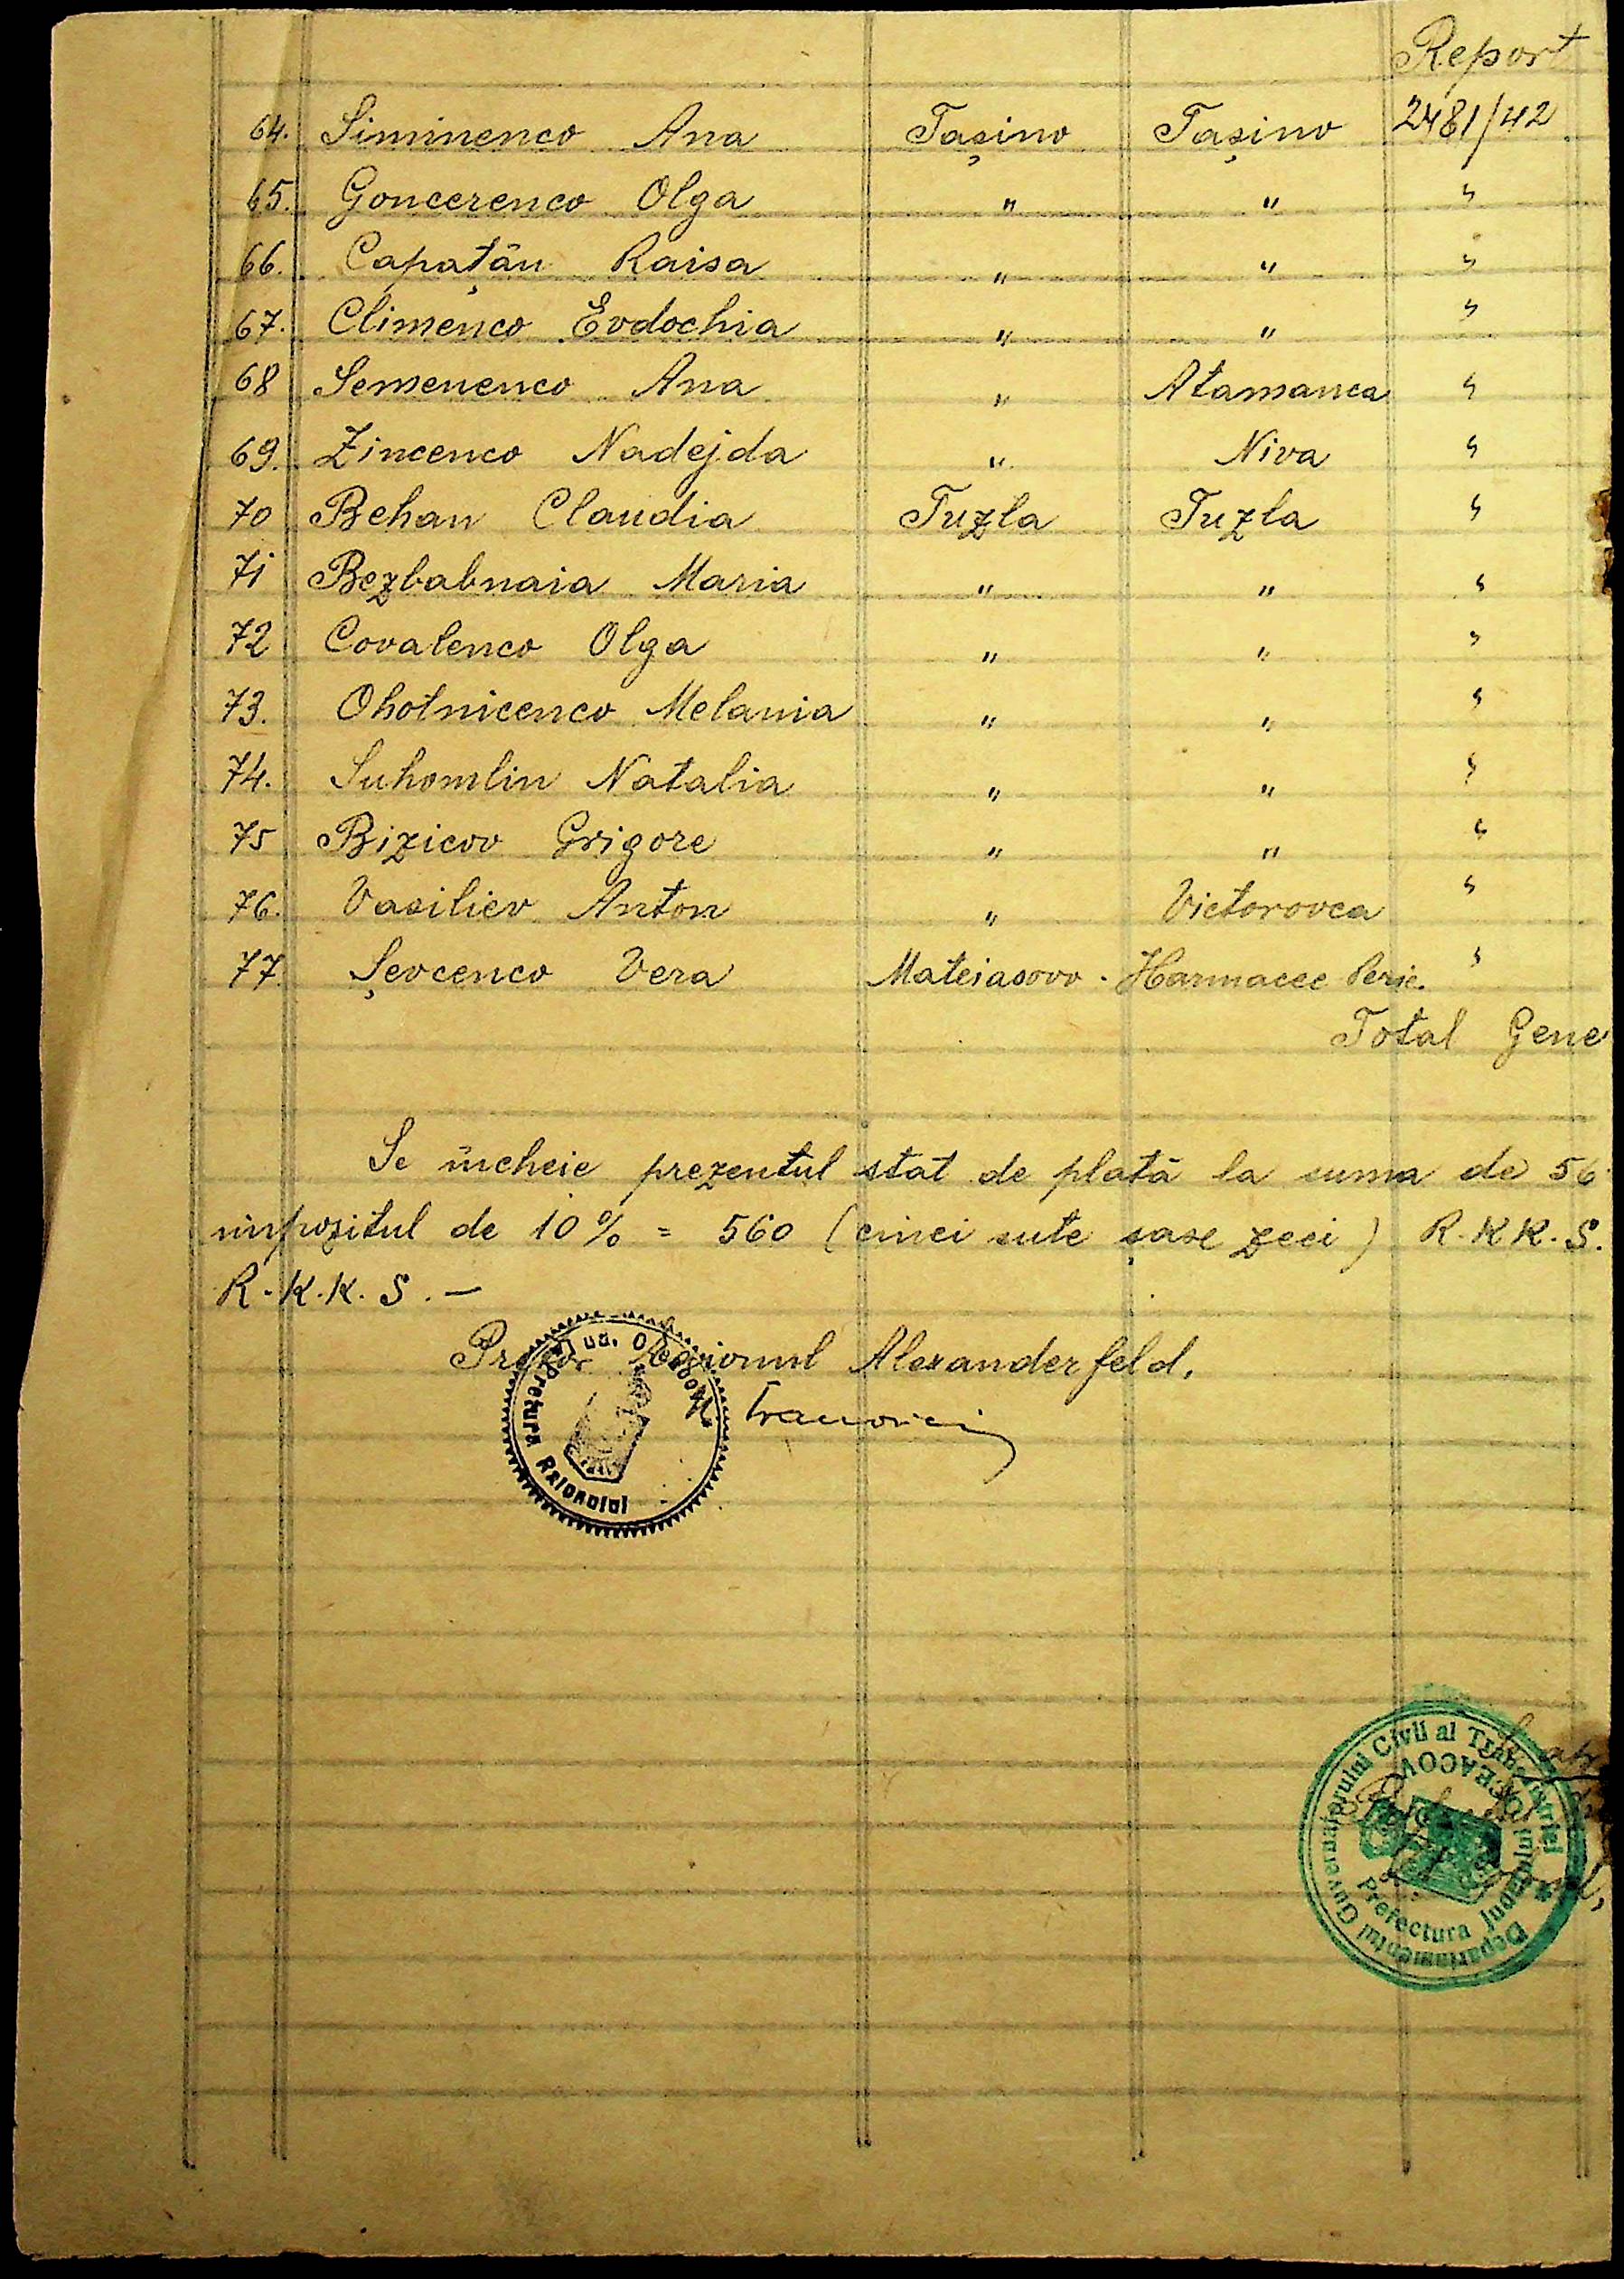 Report
64. Siminenco Ana Tașino Tașino 2481/42
65. Goncerenco Olga " " "
66. Capațân Raisa " " "
67. Climenco Evdochia " " "
68 Semenenco Ana " Atamanca "
69. Zincenco Nadejda " Niva "
70 Behan Claudia Tuzla Tuzla "
71 Bezbabnaia Maria " " "
72 Covalenco Olga " " "
73. Ohotnicenco Melania " " "
74. Suhomlin Natalia " " "
75 Bizicov Grigore " " "
76. Vasiliev Anton " Victorovca "
77. Șevcenco Vera Mateiasovo - "
Total Gene
Se încheie prezentul stat de plată la suma de 56
impozitul de 10% = 560 (cinci sute șase zeci) R.K.K.S.
R.K.K.S. —
Pretor Raionul Alexanderfeld,
Jud.
Pretura Raionului
Departamentul Guvernatorului Civil al Transnistriei
Prefectura Județului OCEACOV